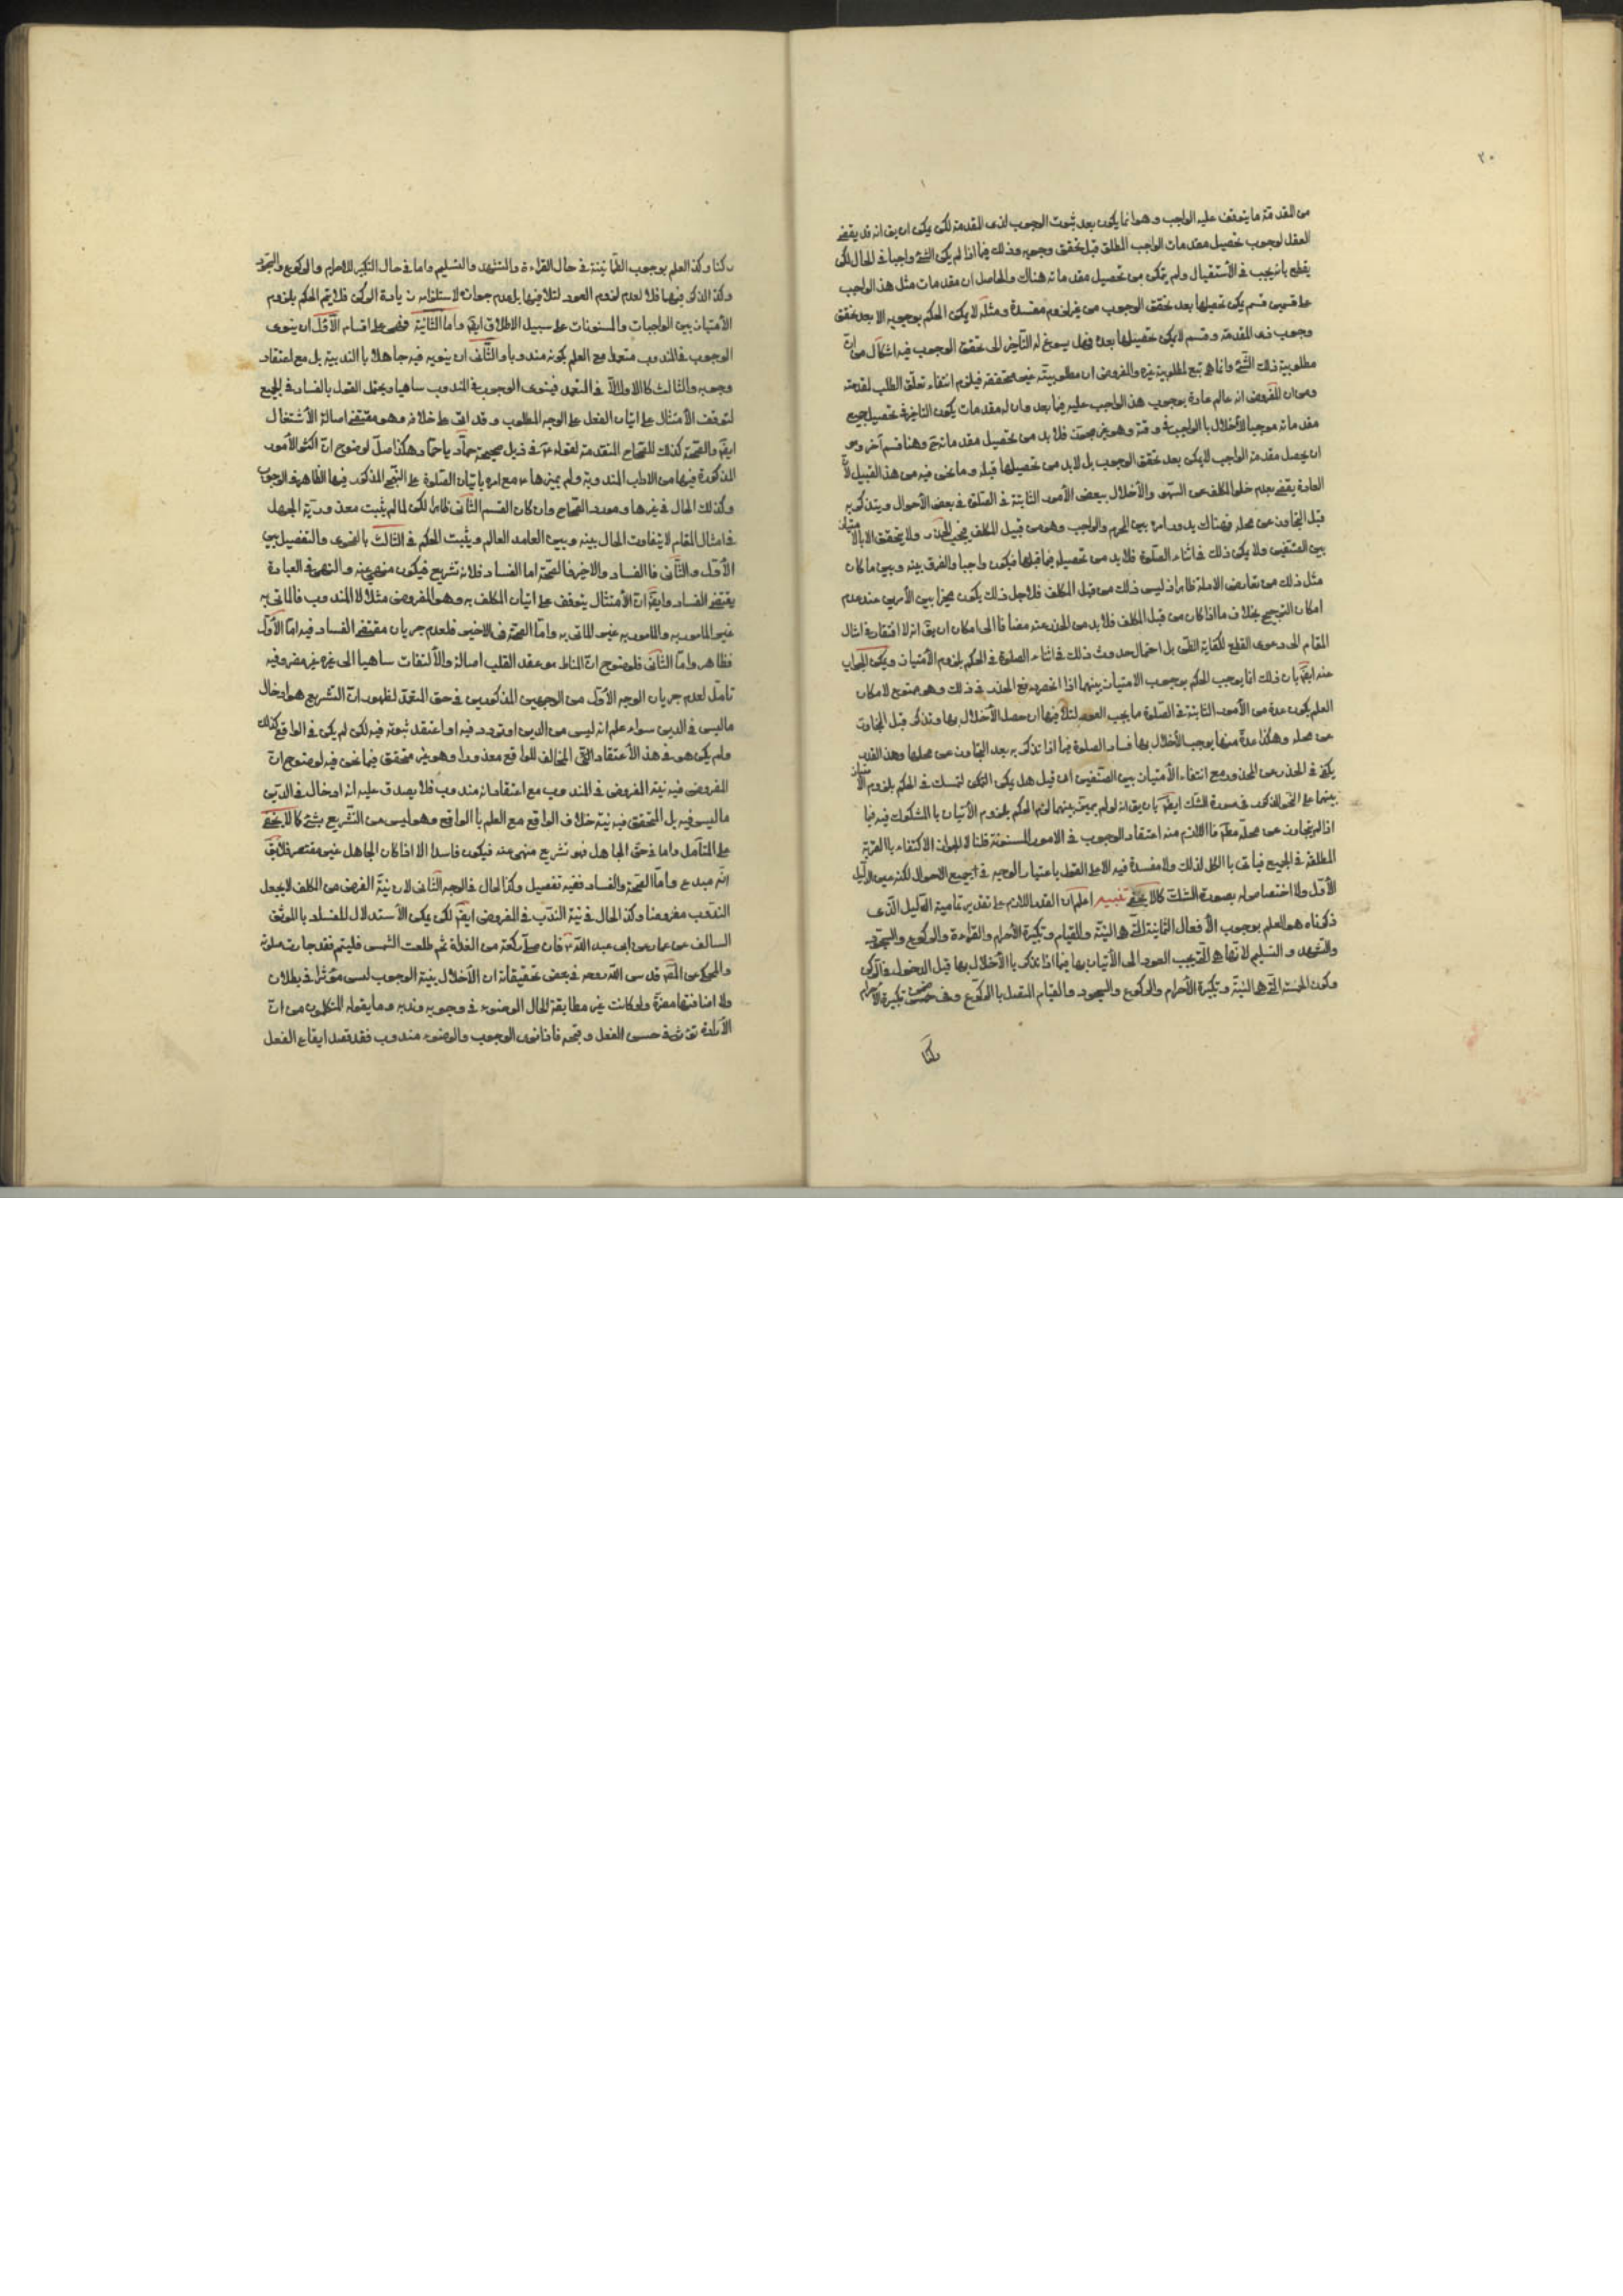 ٢٠
من المقدمة ما يتوقف عليه الواجب وهو انما يكون بعد ثبوت الوجوب لذى المقدمة لكن يمكن ان يق انه قد يقضى
العقل لوجوب تحصيل مقدمات الواجب المطلق قبل تحقق وجوبه وذلك فيما اذا لم يكن الشئ واجبا فى الحال لكن
يقطع بانه يجب فى الأستقبال ولم يتمكن من تحصيل مقدماته هناك والحاصل ان مقدمات مثل هذا الواجب
على قسمين قسم يمكن تحصيلها بعد تحقق الوجوب من غير لزوم مفسدة ومثله لا يمكن الحكم بوجوبه الا بعد تحقق
وجوب ذى المقدمة وقسم لا يمكن تحصيلها بعده فهل يسوغ له التأخير الى تحقق الوجوب فيه اشكال من ان
مطلوبية ذلك الشئ وانما هو تبع لمطلوبية غيره والمفروض ان مطلوبيته غير متحققة فيلزم انتفاء تعلق الطلب لمقدمته
ومن ان المفروض انه عالم عادة بوجوب هذا الواجب عليه فيما بعد وان له مقدمات يكون التاخير فى تحصيل جميع
مقدماته موجبا للأخلال بالواجب فى وقته وهو غير مجوز فلا بد من تحصيل مقدماته ح وهنا قسم آخر وهو
ان يحصل مقدمة الواجب لا يمكن بعد تحقق الوجوب بل لا بد من تحصيلها قبله وما نحن فيه من هذا القبيل لأن
العادة يقضى بعدم خلو المكلف عن السهو والأخلال ببعض الأمور الثابتة فى الصلوة فى بعض الأحوال ويتذكر به
قبل التجاوز عن محله فهناك يدور امره بين المحرم والواجب وهو من قبيل المكلف فيجب الحذر ولا يتحقق الا بالامتياز
بين الصنفين ولا يمكن ذلك فى اثناء الصلوة فلا بد من تحصيله فيما قبلها فيكون واجبا والفرق بينه وبين ما كان
مثل ذلك من تعارض الادلة ظاهر اذ ليس ذلك من قبل المكلف فلاجل ذلك يكون مخيرا بين الأمرين عند عدم
امكان الترجيح بخلاف ما اذا كان من قبل المكلف فلا بد من الحذر عنه مضافا الى امكان ان يق انه لا افتقار فى امثال
المقام الى دعوى القطع لكفاية الظن بل احتمال حدوث ذلك فى اثناء الصلوة فى الحكم بلزوم الأمتياز ويمكن الجواب
عنه ايضا بان ذلك انما يوجب الحكم بوجوب الامتياز بينهما اذا انحصر دفع الحذر فى ذلك وهو ممنوع لامكان
العلم بكون عدة من الأمور الثابتة فى الصلوة مما يجب العود لتلافيها ان حصل الأخلال بها وتذكر قبل التجاوز
عن محله وهكذا عدة منها يوجب الأخلال بها فساد الصلوة فيما اذا تذكر به بعد التجاوز عن محلها وهذا القدر
يكفى فى الحذر عن المحذور مع انتفاء الأمتياز بين الصنفين ان قيل هل يمكن التمسك فى الحكم بلزوم الامتياز
بينهما على النحو المذكور فى صورة الشك ايضا بان يق انه لو لم يميز بينهما لزم الحكم بلزوم الأتيان بالمشكوك فيه فيما
اذا لم يتجاوز عن محله مط فاللازم منه اعتقاد الوجوب فى الامور المسنونة قلنا لا لجواز الاكتفاء بالقربة
المطلقة فى الجميع فياتى بالكل لذلك ولا مفسدة فيه الا على القول باعتبار الوجه فى جميع الاحوال لكنه عين الدليل
الأول ولا اختصاص له بصورة الشك كما لا يخفى تنبيه اعلم ان القدر اللازم على تقدير تمامية الدليل الذى
ذكرناه هو العلم بوجوب الأفعال الثمانية التى هى النية والقيام وتكبيرة الأحرام والقراءة والركوع والسجود
والتشهد والتسليم لانها هى التى يجب العود الى الأتيان بها فيما اذا تذكر بالأخلال بها قبل الدخول فى الركن
وكون الخمسة التى هى النية وتكبيرة الأحرام والركوع والسجود والقيام المتصل بالركوع وفى تكبيرة الاحرام
ركنا
ركنا وكذا العلم بوجوب الطمانينة فى حال القراءة والتشهد والتسليم واما فى حال التكبير للاحرام والركوع والسجود
وكذا الذكر فيهما فلا لعدم لزوم العود لتلافيها بل عدم جوازه لاستلزامه زيادة الركن فلا يتم الحكم بلزوم
الأمتياز بين الواجبات والمسنونات على سبيل الاطلاق ايضا واما الثانية فهى على اقسام الأول ان ينوى
الوجوب فى المندوب متعمدا مع العلم بكونه مندوبا والثانى ان ينويه فيه جاهلا بالندبية بل مع اعتقاد
وجوبه والثالث كالاول الا فى التعمد فينوى الوجوب فى المندوب ساهيا ويحتمل القول بالفساد فى الجميع
لتوقف الأمتثال على اتيان الفعل على الوجه المطلوب وقد اتى على خلافه وهو مقتضى اصالة الأشتغال
ايضا والصحة كذلك للصحاح المتقدمة لقوله ع فى ذيل صحيحة حماد يا حماد هكذا صل لوضوح ان اكثر الأمور
المذكورة فيها من الاداب المندوبة ولم يميزها ع مع امره باتيان الصلوة على النهج المذكور فيها الظاهر فى الوجوب
وكذلك الحال فى غيرها ومورد الصحاح وان كان القسم الثانى ظاهرا لكن لما لم يثبت معذورية الجهل
فى امثال المقام لا يتفاوت الحال بينه وبين العامد العالم ويثبت الحكم فى الثالث بالفحوى والتفصيل بين
الأول والثانى فالفساد والاخير فالصحة اما الفساد فلانه تشريع فيكون منهى عنه والنهى فى العبادة
يقتضى الفساد وايضا ان الأمتثال يتوقف على اتيان المكلف به وهو المفروض مثلا لا المندوب فالماتى به
غير المامور به والمامور به غير الماتى به واما الصحة فى الاخير فلعدم جريان مقتضى الفساد فيه اما الأول
فظاهر واما الثانى فلوضوح ان المناط هو عقد القلب اصالة والألتفات ساهيا الى غيره غير مضر وفيه
تامل لعدم جريان الوجه الأول من الوجهين المذكورين فى حق المتعمد لظهور ان التشريع هو ادخال
ما ليس فى الدين سواء علم انه ليس من الدين او تردد فيه او اعتقد ثبوته فيه لكن لم يكن فى الواقع كذلك
ولم يكن هو فى هذا الأعتقاد المخالف للواقع معذورا وهو غير متحقق فيما نحن فيه لوضوح ان
المفروض فيه نية الفرض فى المندوب مع اعتقاد انه مندوب فلا يصدق عليه انه ادخال فى الدين
ما ليس فيه بل المتحقق فيه نية خلاف الواقع مع العلم بالواقع وهو ليس من التشريع بشئ كما لا يخفى
على المتامل واما فى حق الجاهل فهو تشريع منهى عنه فيكون فاسدا الا اذا كان الجاهل غير مقصر فلا يق
انه مبدع واما الصحة والفساد ففيه تفصيل وكذا الحال فى الوجه الثانى لان نية الفرض من المكلف لا يجعل
الندب مفروضا وكذا الحال فى نية الندب فى المفروض ايضا لكن يمكن الأستدلال للفساد بالموثق
السالف عن عمار عن ابى عبد الله ع فان صلى ركعة من الغداة ثم طلعت الشمس فليتم فقد جازت صلوته
والمحكى عن المحقق قدس الله روحه فى بعض تحقيقاته ان الأخلال بنية الوجوب ليس مؤثرا فى بطلان
ولا اضافتها مضرة ولو كانت غير مطابقة لحال الوضوء فى وجوبه وندبه وما يقوله المتكلمون من ان
الأرادة تؤثر فى حسن الفعل وقبحه فاذا نوى الوجوب والوضوء مندوب فقد قصد ايقاع الفعل